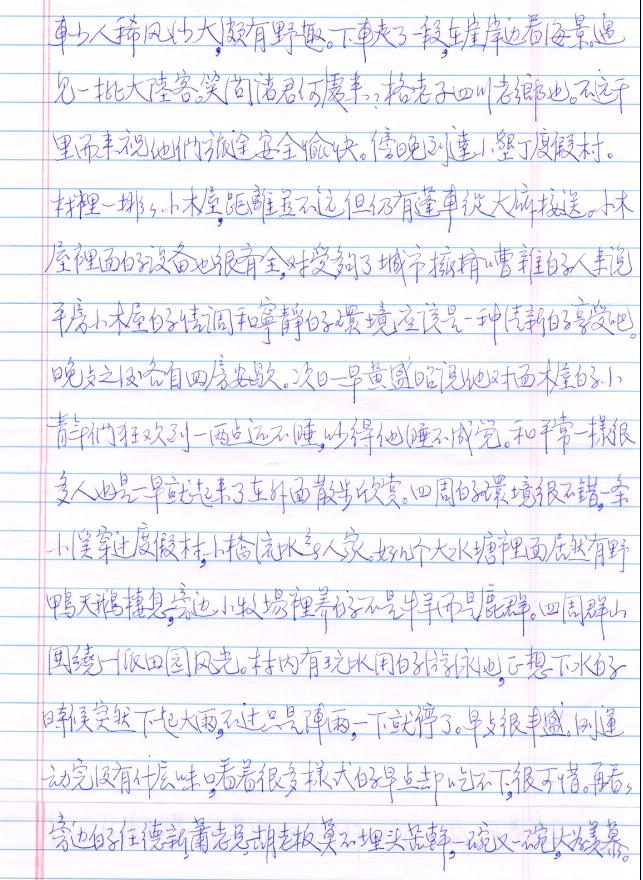 車少人稀风沙大,頗有野趣。下車走了一段,在崖岸边看海景。遇
见一批大陸客。笑问诸君何處来?格老子四川老鄉也。不远千
里而来祝他們旅途安全愉快。傍晚到達小墾丁度假村。
村裡一排排小木屋,距離並不远但仍有蓬車從大廳接送。小木
屋裡面的设备也很齐全,对受夠了城市擁擠嘈雜的人来说
平房小木屋的情调和寧靜的環境,应该是一种清新的享受吧。
晚点之后各自回房安歇。次日一早黄盛昭说他对面木屋的小
青年們狂欢到一两点还不睡,吵得他睡不成觉。和平常一樣很
多人也是一早就起来了在外面散步欣赏。四周的環境很不错,一条
小溪穿过度假村,小橋流水人家。好几个大水塘裡面居然有野
鴨天鵝棲息,旁边小牧場裡养的不是牛羊而是鹿群。四周群山
圍繞一派田园风光。村内有玩水用的游泳池,正想下水的
時候突然下起大雨,不过只是陣雨,一下就停了。早点很丰盛,刚運
动完没有什么味口,看着很多樣式的早点却吃不下,很可惜。再看看
旁边的任德新,蕭老总,胡老板莫不埋头苦幹,一碗又一碗,大为羡慕。